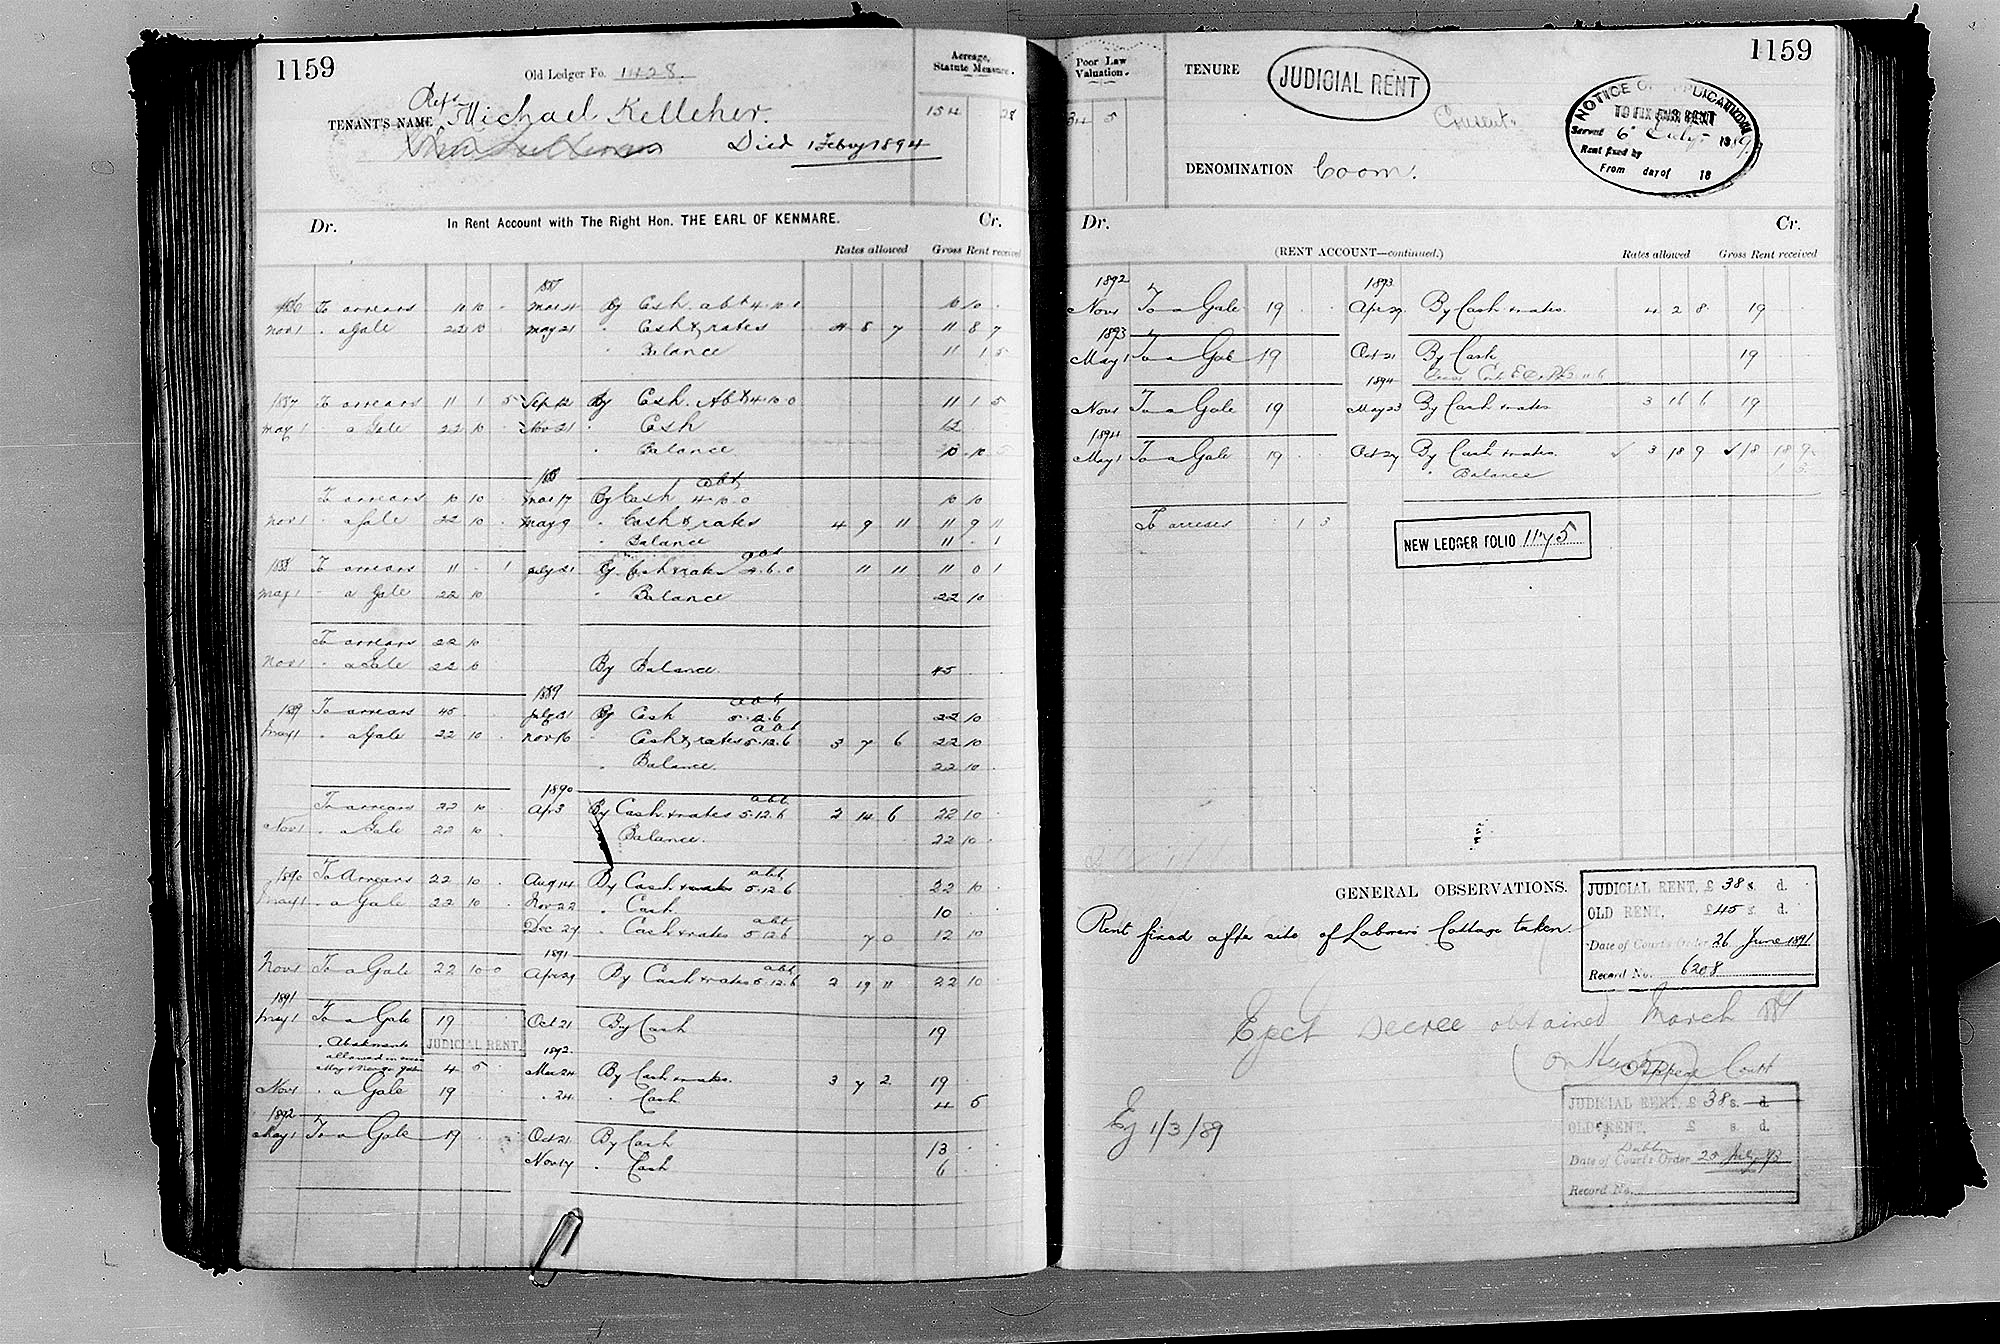 1159
Old Ledger Fo. 1428.
Acreage, Statute Measure.
Reps
TENANT'S NAME Michael Kelleher.
Died 1 Feby 1894
154 28
Dr. In Rent Account with The Right Hon. THE EARL OF KENMARE. Cr.
Rates allowed Gross Rent received
1887
1886 To arrears 10 10 . Mar 4 By Cash abt 4.10.0 10 10 .
Nov 1 " a Gale 22 10 . May 21 " Cash & rates 4 8 7 11 8 7
" Balance 11 1 5
1887 To arrears 11 1 5 Sep 12 By Cash. Abt 4.10.0 11 1 5
May 1 " a Gale 22 10 . Nov 21 " Cash 12
" Balance 10 10 5
1888
abt
To arrears 10 10 . Mar 17 By Cash 4.10.0 10 10
Nov 1 " a Gale 22 10 . May 9 " Cash & rates 4 9 11 11 9 11
" Balance 11 . 1
abt
1888 To arrears 11 . 1 July 21 By Cash & rates 4.6.0 11 11 11 0 1
May 1 " a Gale 22 10 " Balance 22 10
To arrears 22 10
Nov 1 " a Gale 22 10 By Balance. 45
1889
abt
1889 To arrears 45 . . July 31 By Cash 5.12.6 22 10
abt
May 1 " a Gale 22 10 . Nov 16 " Cash & rates 5.12.6 3 7 6 22 10
" Balance. 22 10 .
1890
abt
To arrears 22 10 . Apr 3 By Cash & rates 5.12.6 2 14 6 22 10
Nov 1 " a Gale 22 10 . " Balance. 22 10 .
abt
1890 To Arrears 22 10 . Aug 14 By Cash & rates 5.12.6 22 10
May 1 " a Gale 22 10 . Nov 22 " Cash 10
abt
Dec 27 " Cash & rates 5.12.6 7 0 12 10
1891
abt
Nov 1 To a Gale 22 10 0 Apr 29 By Cash & rates 5.12.6 2 19 11 22 10
1891
May 1 To a Gale 19 Oct 21 By Cash 19
JUDICIAL RENT
1892
" Abatements
allowed in error
4 5 Mar 24 By Cash & rates. 3 7 2 19
Nov 1 " a Gale 19 " 24 " Cash 4 5
1892
May 1 To a Gale 19 Oct 21 By Cash 13
Nov 17 " Cash 6
1159
Poor Law Valuation.
34 5
TENURE JUDICIAL REN'T
NOTICE OF APPLICATION
TO FIX FAIR RENT
Served 6 July 1889
Rent fixed by
From day of 18
DENOMINATION Coom.
Dr. Cr.
(RENT ACCOUNT—continued.)
Rates allowed Gross Rent received
1892 1893
Nov 1 To a Gale 19 . . Apr 29 By Cash & rates. 4 2 8 19
1893
May 1 To a Gale 19 Oct 21 By Cash 19
1894
Nov 1 To a Gale 19 May 23 By Cash & rates 3 16 6 19
1894
May 1 To a Gale 19 Oct 27 By Cash & rates. 3 18 9 18 18 9
" Balance 1 3
To arrears . 1 3
NEW LEDGER FOLIO 1175
GENERAL OBSERVATIONS.
Rent fixed after site of Laborers Cottage taken.
JUDICIAL RENT, £ 38 s. d.
OLD RENT, £45 s. d.
Date of Court's Order 26 June 1891
Record No. 6208
Eject Decree obtained March 1889
Appeal Court
Ej 1/3/89
JUDICIAL RENT, £ 38 s. d.
OLD RENT, £ s. d.
Dublin
Date of Court's Order 20 July 93
Record No.